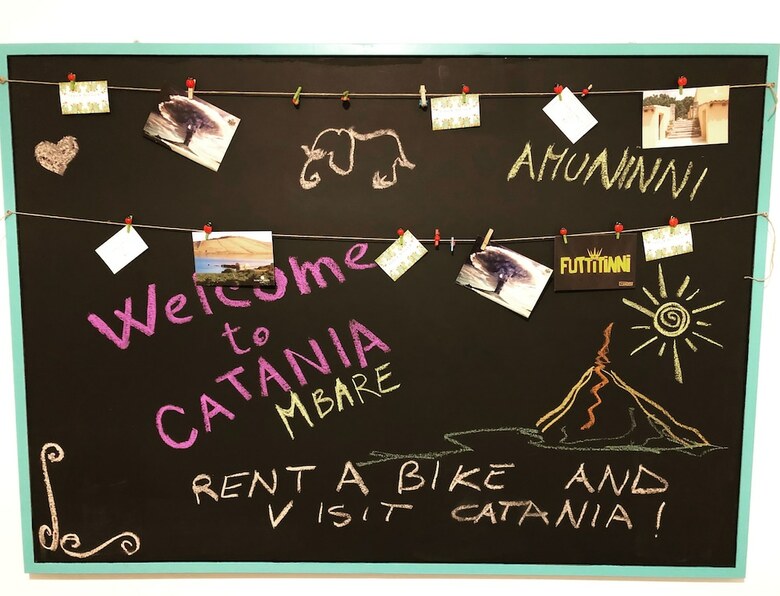 AMUNINNI
FUTTITINNI
Welcome
to
CATANIA
MBARE
RENT A BIKE AND
VISIT CATANIA!